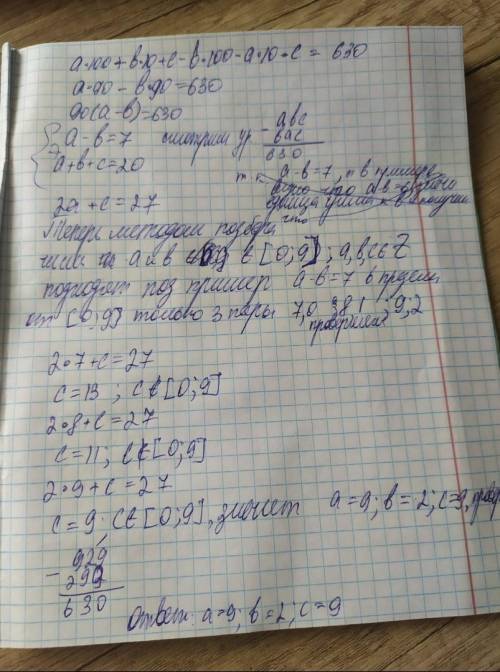 a•100+b•10+c-b•100-a•10+c = 630
a•90 - b•90=630
90(a-b)=630
a-b=7 смотрим ур
a+b+c=20
- abc
bac
630
a-b=7, т в примере
2a +c = 27
что
Теперь методом подбора
[0;9]; a,b,c ∈ Z
подходят под пример a-b=7 в пределе
от [0;9] только 3 пары 7,0 8,1 9,2
проверяем
2•7+c=27
c=13 ; c∉[0;9]
2•8+c=27
c=11; c∉[0;9]
2•9+c=27
c=9 c∈[0;9], значит a=9; b=2; c=9, пров
- 929
299
630
ответ: a=9; b=2; c=9